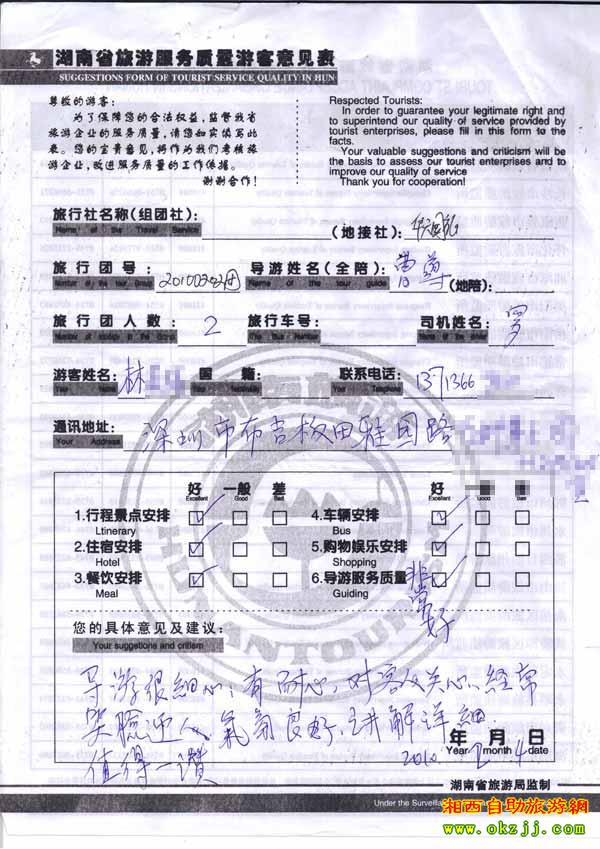 湖南省旅游服务质量游客意见表
SUGGESTIONS FORM OF TOURIST SERVICE QUALITY IN HUN
尊敬的游客:
为了保障您的合法权益,监督我省
旅游企业的服务质量,请您如实填写此
表。您的宝贵意见,将作为我们考核旅
游企业,改进服务质量的工作依据。
谢谢合作!
Respected Tourists:
In order to guarantee your legitimate right and
to superintend our quality of service provided by
tourist enterprises, please fill in this form to the
facts.
Your valuable suggestions and critticism will be
the basis to assess our tourist enterprises and to
improve our quality of service
Thank you for cooperation!
旅行社名称(组团社): (地接社):
Name of the Travel Service
旅行团号: 20100202团 导游姓名(全陪): 曾导 (地陪):
Number of the tour Group Name of the tour guide
旅行团人数: 2 旅行车号: 司机姓名: 罗
The Bus Number Name of the driver
游客姓名: 林 国籍: 联系电话: 1371366
Your Name Your Nationality Your Telephone
通讯地址: 深圳市布吉板田雅园路
Your Address
好 一般 差 好
Excellent Good Bad Excellent Good Bad
1.行程景点安排 4.车辆安排
Ltinerary Bus
2.住宿安排 5.购物娱乐安排
Hotel Shopping
3.餐饮安排 6.导游服务质量 非常好
Meal Guiding
您的具体意见及建议:
Your suggetions and critiem
导游很细心,有耐心,对客人关心,经常
笑脸迎人,氣氛良好,讲解详细.
值得一讚
年 月 日
Year month date
2010. 2 4
湖南省旅游局监制
Under the Surveill
湘西自助旅游網
www.okzjj.com